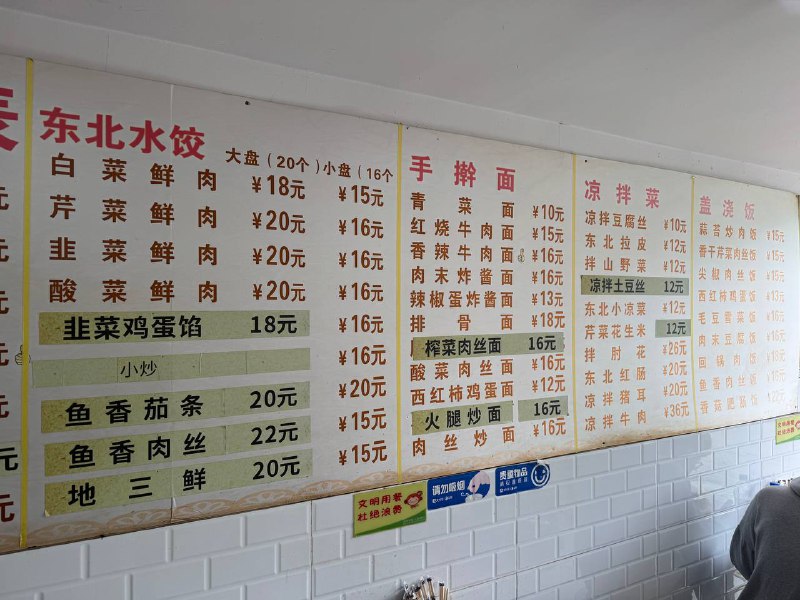 东北水饺 大盘（20个）小盘（16个
白菜鲜肉 ¥18元 ¥15元
芹菜鲜肉 ¥20元 ¥16元
韭菜鲜肉 ¥20元 ¥16元
酸菜鲜肉 ¥20元 ¥16元
韭菜鸡蛋馅 18元 ¥16元
小炒 ¥16元
鱼香茄条 20元 ¥20元
鱼香肉丝 22元 ¥15元
地三鲜 20元 ¥15元
手擀面
青菜面 ¥10元
红烧牛肉面 ¥15元
香辣牛肉面 ¥16元
肉末炸酱面 ¥16元
辣椒蛋炸酱面 ¥13元
排骨面 ¥18元
榨菜肉丝面 16元
酸菜肉丝面 ¥16元
西红柿鸡蛋面 ¥12元
火腿炒面 16元
肉丝炒面 ¥16元
凉拌菜
凉拌豆腐丝 ¥10元
东北拉皮 ¥12元
拌山野菜 ¥12元
凉拌土豆丝 12元
东北小凉菜 ¥12元
芹菜花生米 12元
拌肘花 ¥26元
东北红肠 ¥20元
凉拌猪耳 ¥20元
凉拌牛肉 ¥36元
盖浇饭
蒜苔炒肉饭 ¥15元
香干芹菜肉丝饭 ¥15元
尖椒肉丝饭 ¥15元
西红柿鸡蛋饭
毛豆雪菜饭
肉末豆腐饭
回锅肉饭
鱼香肉丝饭
香菇肥肠饭
文明用餐
杜绝浪费
请勿吸烟
贵重物品
文明用餐
杜绝浪费